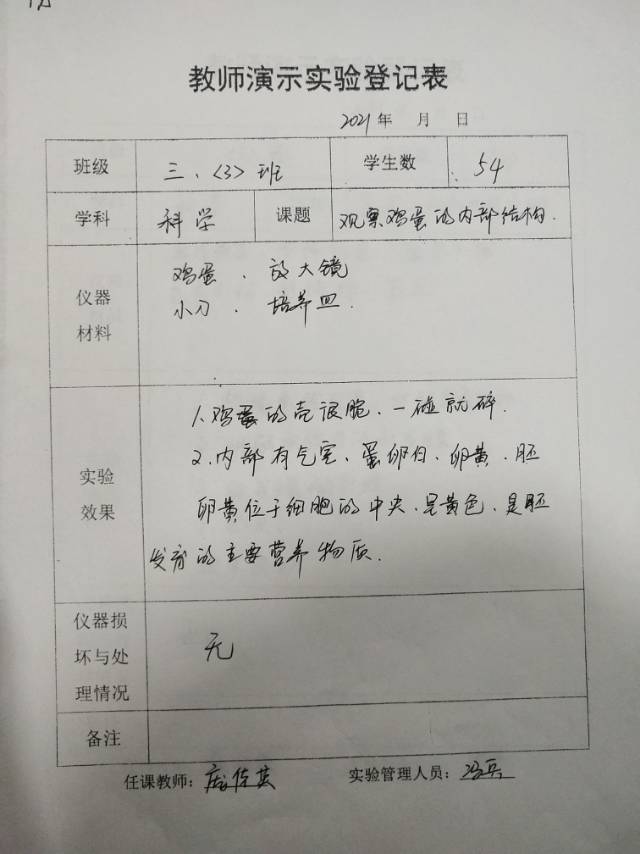 教师演示实验登记表
2021年 月 日
班级 三.〈3〉班 学生数 54
学科 科学 课题 观察鸡蛋的内部结构.
仪器材料 鸡蛋、放大镜
小刀、培养皿.
实验效果 1.鸡蛋的壳很脆、一碰就碎.
2.内部有气室、蛋卵白、卵黄、胚
卵黄位于细胞的中央、是黄色、是胚
发育的主要营养物质.
仪器损坏与处理情况 无
备注
任课教师: 实验管理人员:冯兵